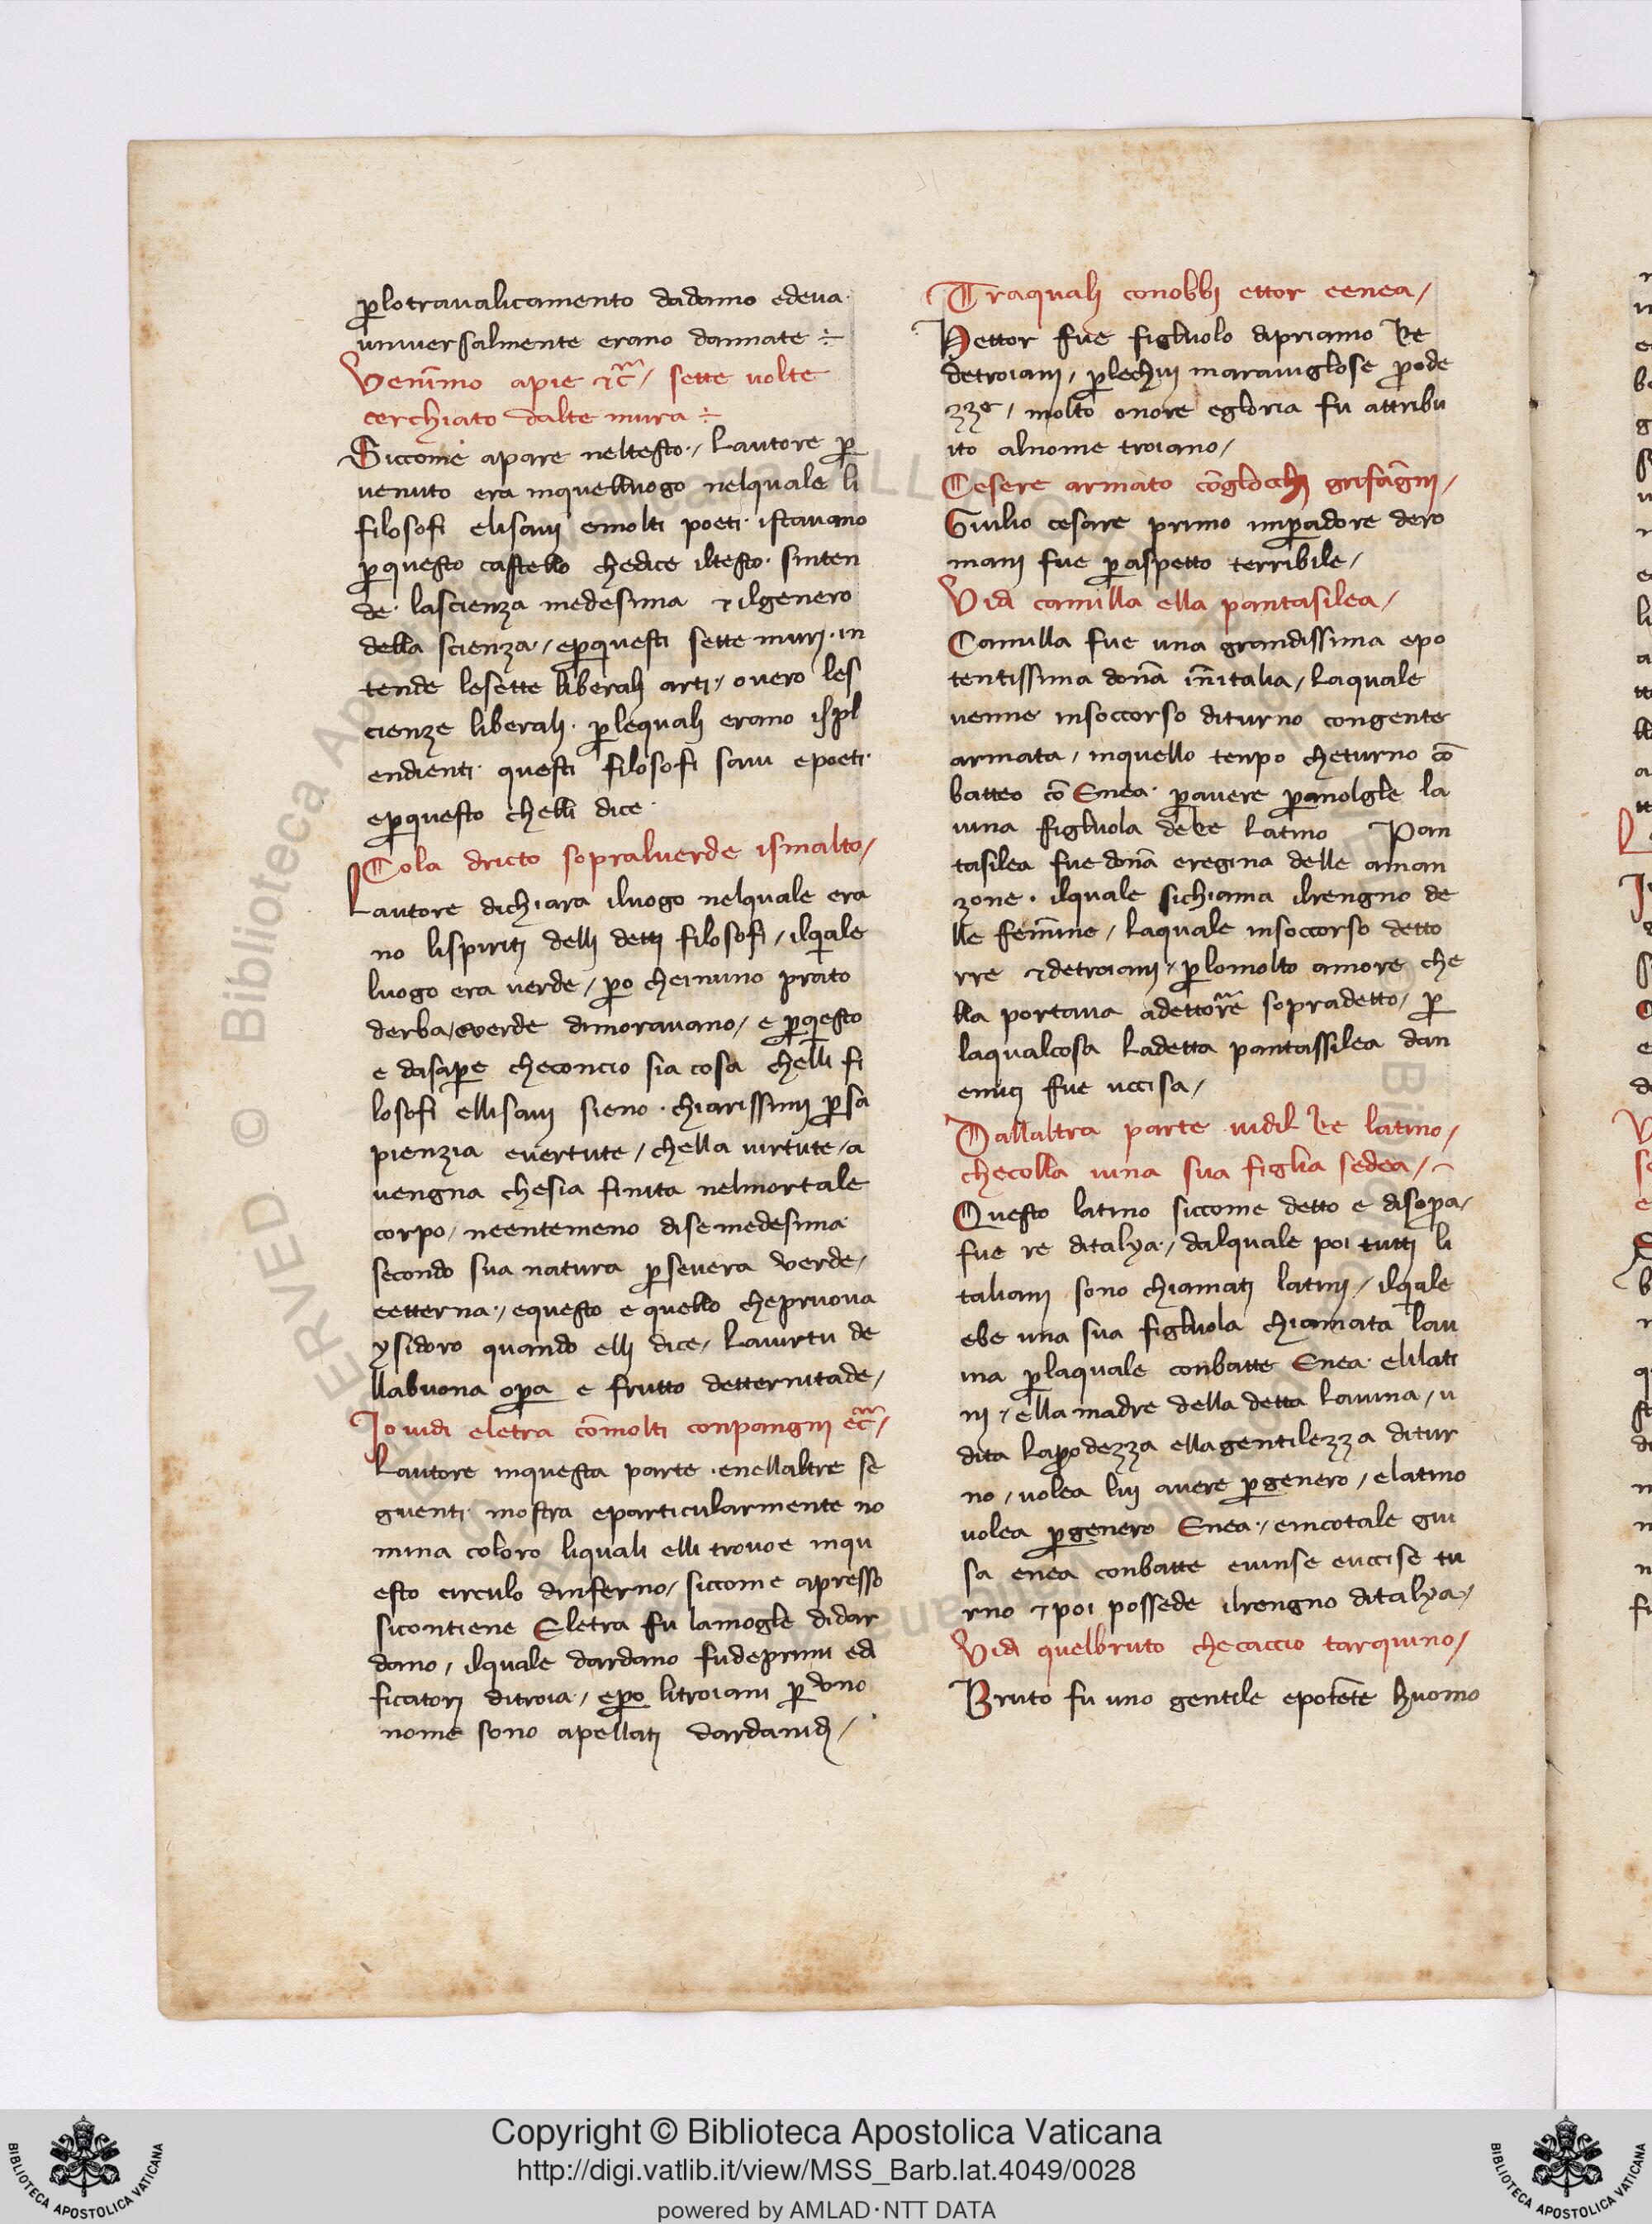 ꝑlotraualicamento dadamo edeua·
uniuersalmente erano dannate ÷
Venĩmo apie ⁊c̃ / sette uolte
cerchiato dalte mura ÷
Siccome apare neltesto·/ Lautore ꝑ
uenuto era inquelluogo nelquale li
filosofi elisauj emolti poeti· istauano
ꝑquesto castello chedice iltesto· sinten
de· lascienza medesima ⁊ilgenero
della scienza·/ eꝑquesti sette murj· in
tende lesette liberalj arti·/ ouero les
cienze liberalj· ꝑlequalj erano ispl
endienti· questi filosofi saui epoeti·
eꝑquesto chelli dice·
Cola dricto sopraluerde ismalto/
Lautore dichiara iluogo nelquale era
no lispiritj dellj dettj filosofi / ilquale
luogo era uerde / ꝑo cheinuno prato
derba/euerde dimorauano / e ꝑquesto
e dasaꝑe checoncio sia cosa chelli fi
losofi ellisauj sieno · chiarissimj ꝑsa
pienzia euertute / chella uirtute / a
uengna chesia finita nelmortale
corpo / neentemeno disemedesima
secondo sua natura ꝑseuera verde /
eetterna·/ equesto e quello cheprououa
ysidoro quando ellj dice / Lauirtu de
llabuona oꝑa e frutto detternitade /
Io uidi eletra cõmolti conpangni ec̃ /
Lautore inquesta parte · enellaltre se
guenti· mostra eparticularmente no
mina coloro liquali elli trouoe inqu
esto circulo dinferno / siccome apresso
sicontiene Eletra fu lamogle didar
dano / ilquale dardano fudeprimi edi
ficatorj ditroia·/ eꝑo litroiani ꝑ vno
nome sono apellatj dardanidj /
Traqualj conobbj ettor eenea /
Hettor fue figluolo dipriamo Re
detroianj / ꝑlechuj marauiglose prode
zze / molto onore egloria fu attribu
ito alnome troiano /
Cesere armato cõglocchj grifãgnj /
Giulio cesare primo imꝑadore dero
manj fue ꝑaspetto terribile /
Vidi camilla ella pantasilea /
Camilla fue una grandissima epo
tentissima dona ĩnitalia / Laquale
uenne insoccorso diturno congente
armata / inquello tenpo cheturno cõ
batteo cõ Enea· ꝑauere ꝑamolgle la
uina figluola deRe Latino Pan
tasilea fue dona eregina delle aman
zone · ilquale sichiama ilrengno de
lle femĩne / Laquale insoccorso detto
rre ⁊detroianj / ꝑlomolto amore che
lla portaua adettore sopradetto / ꝑ
laqualcosa Ladetta pantassilea dan
emicj fue uccisa /
Dallaltra parte uidil Re latino /
checolla uina sua figlia sedea /
Questo latino siccome detto e disopra /
fue re ditalya·/ dalquale poi tuttj li
talianj sono chiamatj latinj / ilquale
ebe una sua figluola chiamata lau
ina ꝑlaquale conbatte Enea· elilati
nj ⁊ ella madre della detta Lauina / u
dita Laprodezza ellagentilezza ditur
no / uolea luj auere ꝑgenero / elatino
uolea ꝑgenero Enea·/ eincotale gui
sa enea conbatte euinse euccise tu
rno ⁊poi possede ilrengno ditalya /
Vidi quelbruto checaccio tarquino /
Bruto fu uno gentile epotẽte huomo
Copyright © Biblioteca Apostolica Vaticana
http://digi.vatlib.it/view/MSS_Barb.lat.4049/0028
powered by AMLAD·NTT DATA
BIBLIOTECA APOSTOLICA VATICANA
BIBLIOTECA APOSTOLICA VATICANA